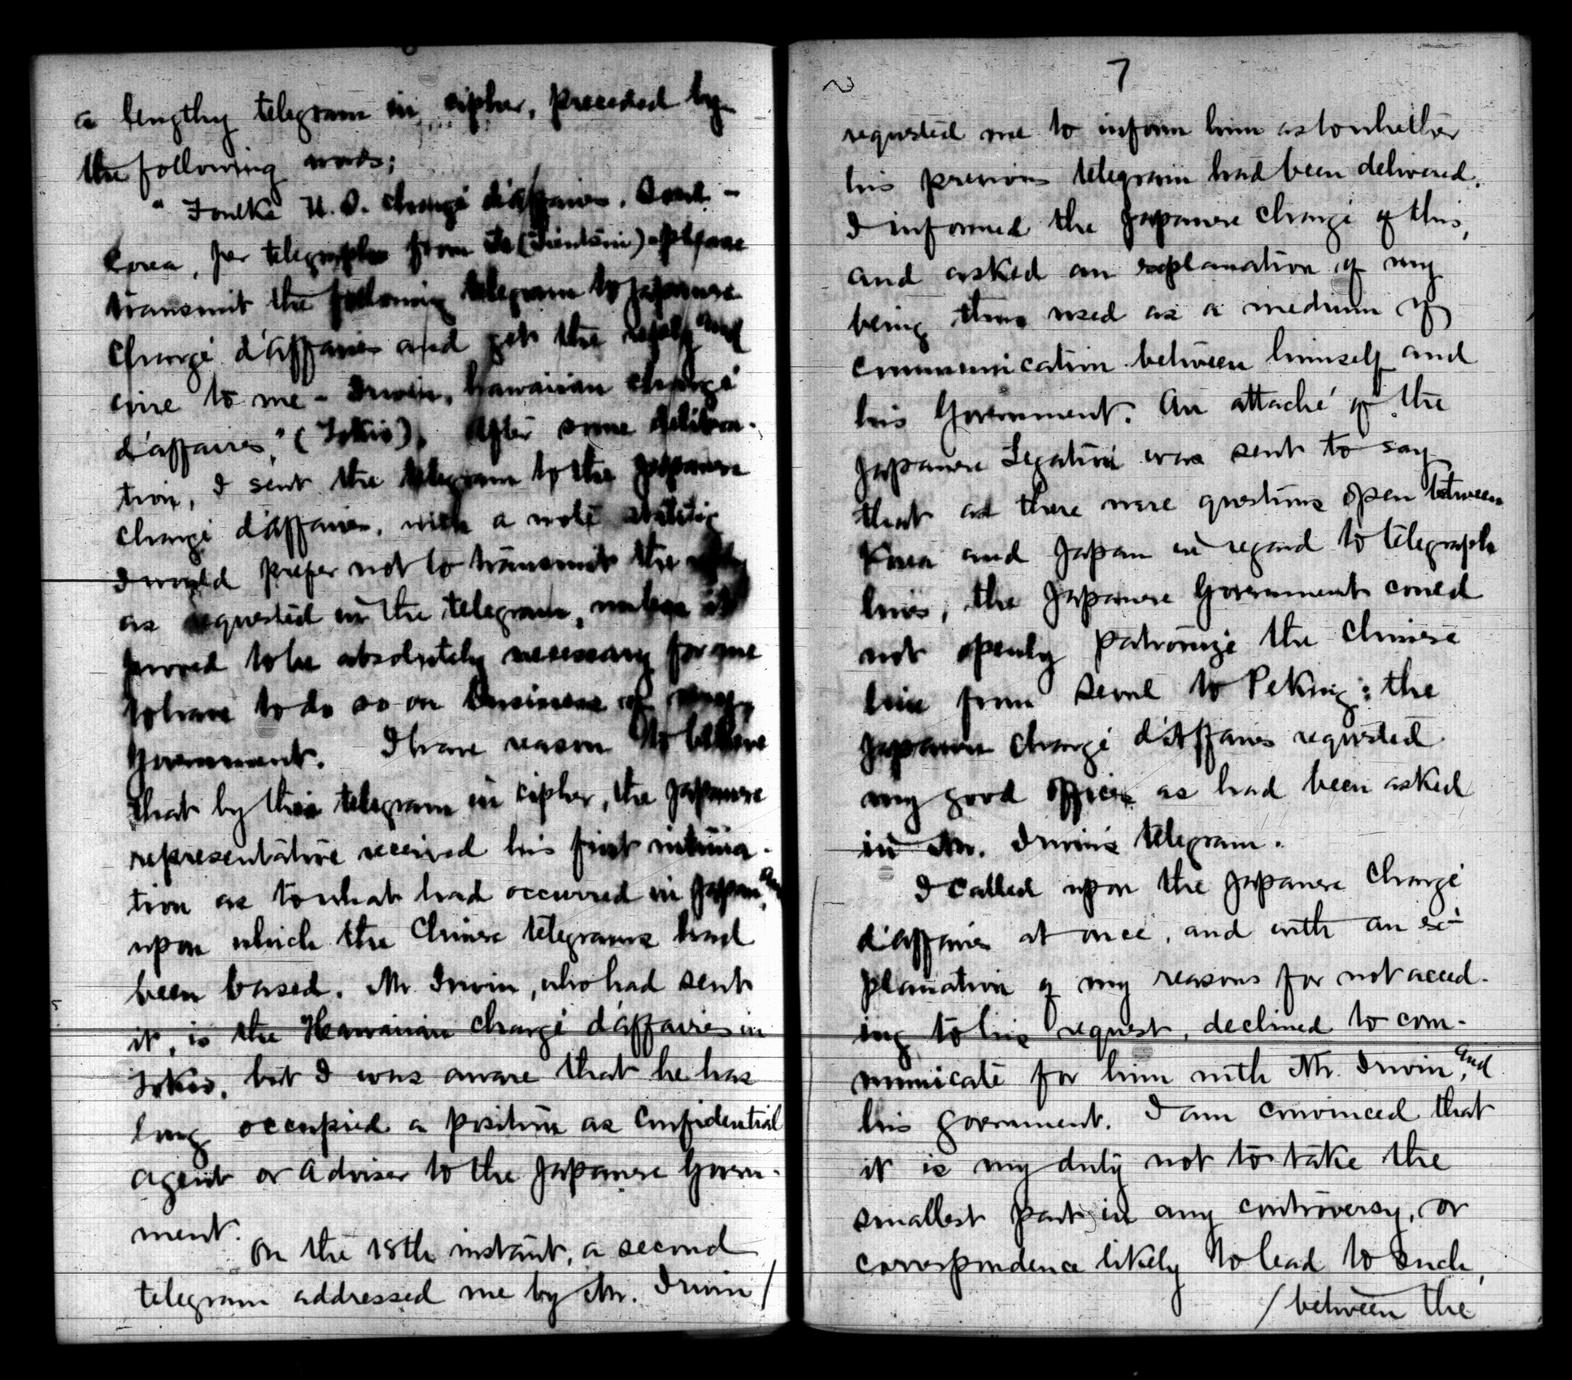 a lengthy telegram in cipher, preceded by
the following words;
" Foulke U. S. chargé d'affaires. Seoul -
Corea, per telegraphs from Te (Tientsin) - please
transmit the following telegram to Japanese
chargé d'affaires and get the reply and
wire to me - Irwin, Hawaiian chargé
d'affaires," (Tokio). After some delibera-
tion, I sent the telegram to the Japanese
chargé d'affaires, with a note stating
I would prefer not to transmit the
as requested in the telegram, unless it
proved to be absolutely necessary for me
to have to do so on business of
Government. I have reason to believe
that by this telegram in cipher, the Japanese
representative received his first intima-
tion as to what had occurred in Japan, and
upon which the Chinese telegrams had
been based. Mr. Irwin, who had sent
it, is the Hawaiian chargé d'affaires in
Tokio, but I was aware that he has
long occupied a position as confidential
agent or adviser to the Japanese Govern-
ment.
On the 18th instant, a second
telegram addressed me by Mr. Irwin /
7
requested me to inform him as to whether
his previous telegram had been delivered.
I informed the Japanese chargé of this,
and asked an explanation of my
being thus used as a medium of
communication between himself and
his Government. An attaché of the
Japanese Legation was sent to say
that as there were questions open between
Korea and Japan in regard to telegraph
lines, the Japanese Government could
not openly patronize the Chinese
line from Seoul to Peking; the
Japanese chargé d'affaires requested
my good offices as had been asked
in Mr. Irwin's telegram.
I called upon the Japanese chargé
d'affaires at once, and with an ex-
planation of my reasons for not acced-
ing to his request, declined to com-
municate for him with Mr. Irwin, and
his government. I am convinced that
it is my duty not to take the
smallest part in any controversy, or
correspondence likely to lead to such,
/ between the